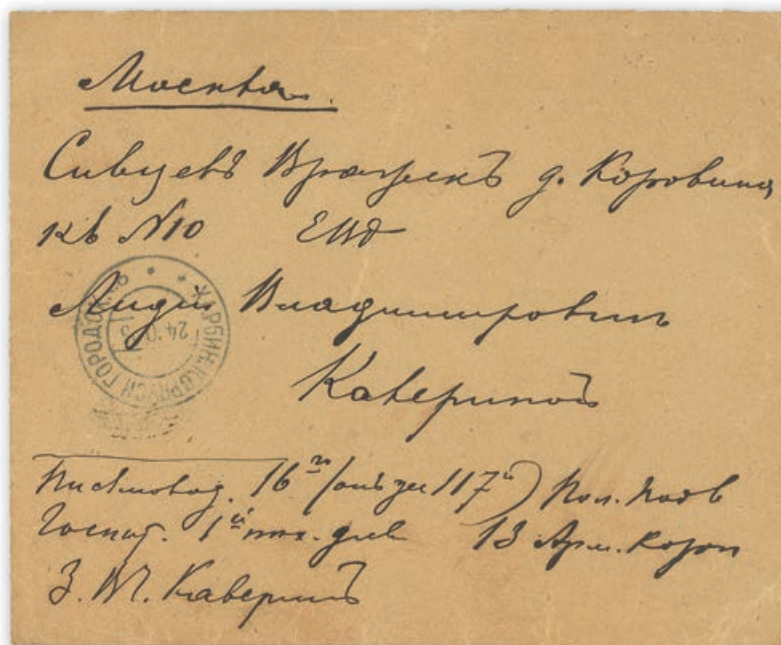 Москва.
Сивцевъ Вражекъ д. Коровина
кв №10 ЕВБ
Лидіи Владимировнѣ
Кавериной
ХАРБИНЪ ГОРОДСК.
24 10 5
Письмовод. 16го (онъ же 117й) Пол. Подв
Госпит. 1й пѣх. див 13 Арм. Корп
З. М. Каверинъ